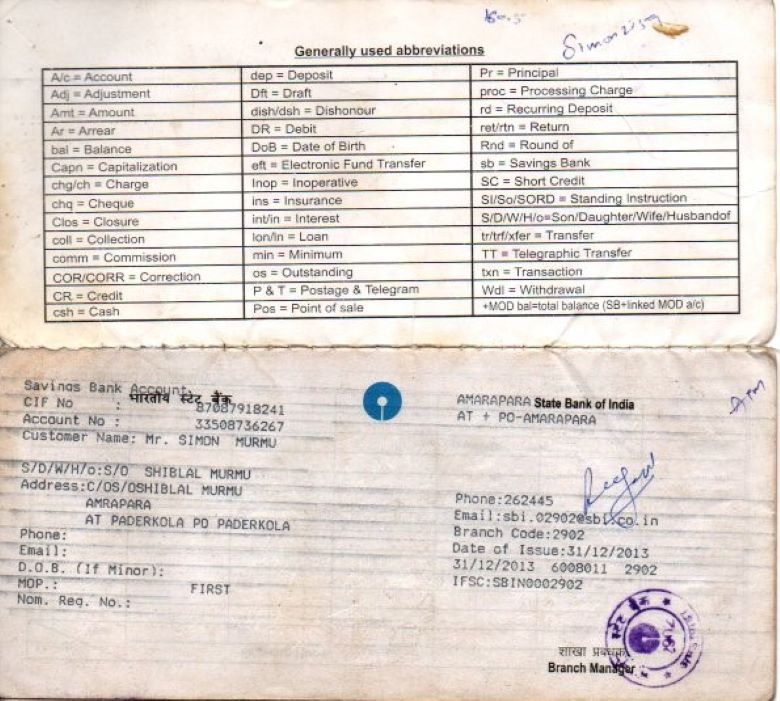 Simon
Generally used abbreviations
A/c = Account dep = Deposit Pr = Principal
Adj = Adjustment Dft = Draft proc = Processing Charge
Amt = Amount dish/dsh = Dishonour rd = Recurring Deposit
Ar = Arrear DR = Debit ret/rtn = Return
bal = Balance DoB = Date of Birth Rnd = Round of
Capn = Capitalization eft = Electronic Fund Transfer sb = Savings Bank
chg/ch = Charge Inop = Inoperative SC = Short Credit
chq = Cheque ins = Insurance SI/So/SORD = Standing Instruction
Clos = Closure int/in = Interest S/D/W/H/o=Son/Daughter/Wife/Husbandof
coll = Collection lon/ln = Loan tr/trf/xfer = Transfer
comm = Commission min = Minimum TT = Telegraphic Transfer
COR/CORR = Correction os = Outstanding txn = Transaction
CR = Credit P & T = Postage & Telegram Wdl = Withdrawal
csh = Cash Pos = Point of sale +MOD bal=total balance (SB+linked MOD a/c)
Savings Bank Account
भारतीय स्टेट बैंक
CIF No : 87087918241
Account No : 33508736267
Customer Name: Mr. SIMON MURMU
S/D/W/H/o:S/O SHIBLAL MURMU
Address:C/OS/OSHIBLAL MURMU
AMRAPARA
AT PADERKOLA PO PADERKOLA
Phone:
Email:
D.O.B. (If Minor):
MOP.: FIRST
Nom. Reg. No.:
AMARAPARA State Bank of India
AT + PO-AMARAPARA
ATM
Phone:262445
Email:sbi.02902@sbi.co.in
Branch Code:2902
Date of Issue:31/12/2013
31/12/2013 6008011 2902
IFSC:SBIN0002902
स्टेट बैंक
शाखा प्रबंधक
Branch Manager